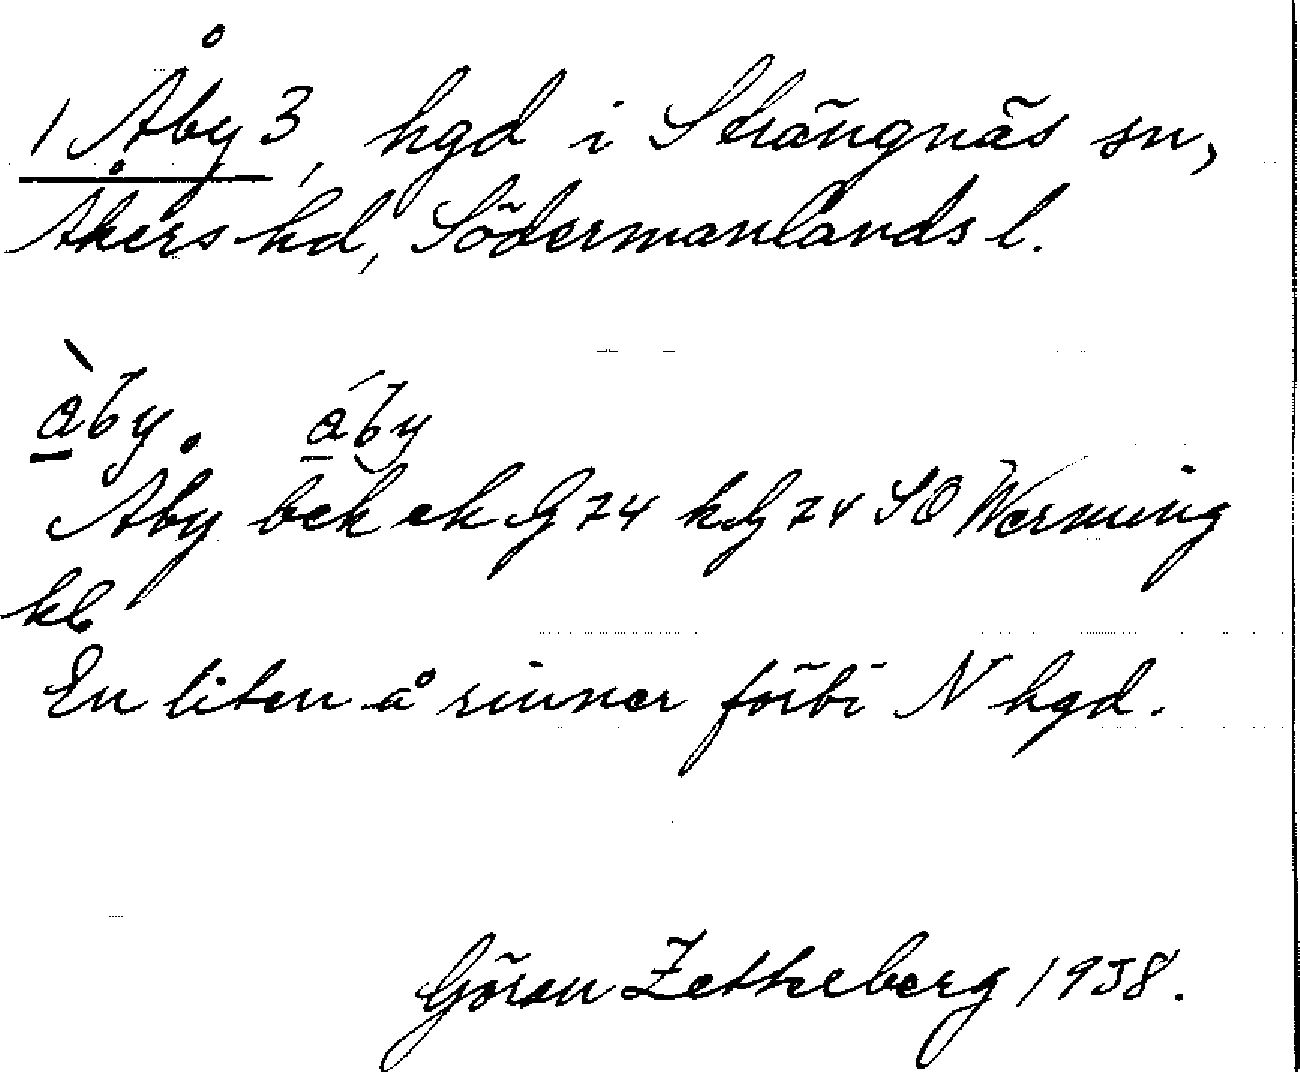 1 Åby 3, hgd i Strängnäs sn,
Åkers hd, Södermanlands l.
àby. áby
Åby bek ek G 74 kG 74 SO Werming
kb
En liten å rinner förbi N hgd.
Göran Zetheberg 1938.